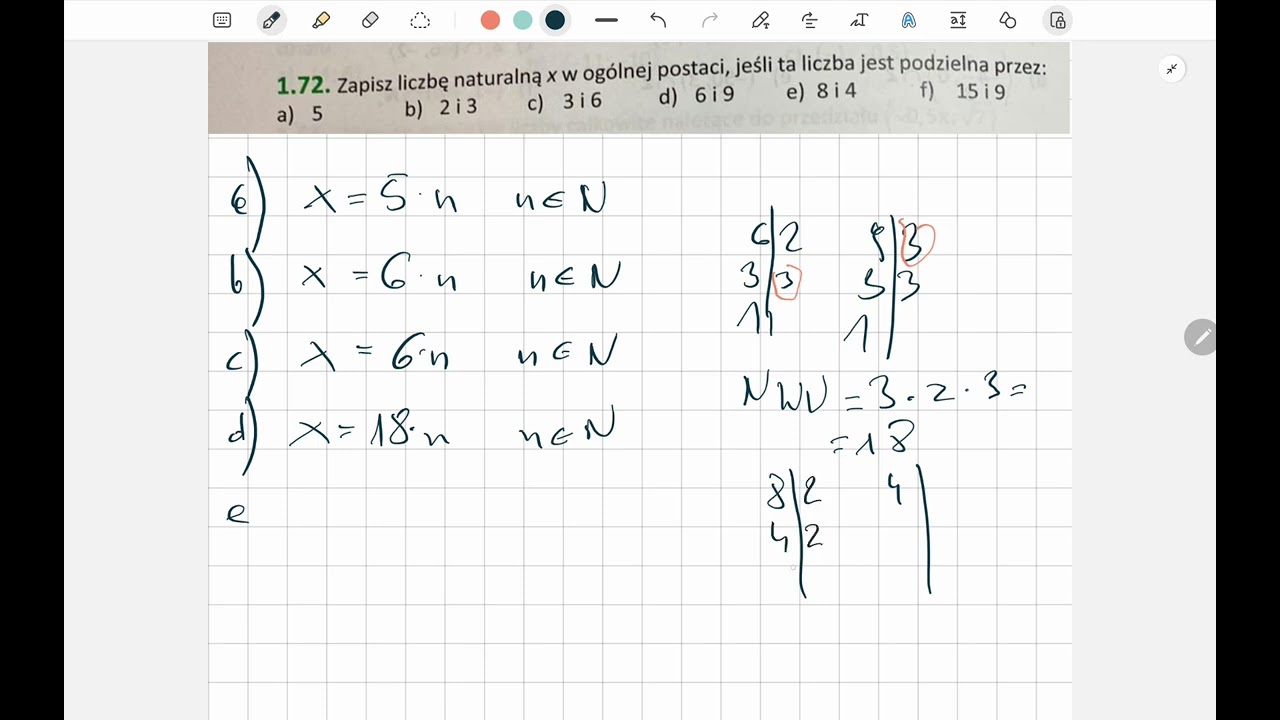 1.72. Zapisz liczbę naturalną x w ogólnej postaci, jeśli ta liczba jest podzielna przez:
a) 5 b) 2 i 3 c) 3 i 6 d) 6 i 9 e) 8 i 4 f) 15 i 9
x = 5 · n n ∈ N
b) x = 6 · n n ∈ N
c) x = 6 · n n ∈ N
d) x = 18 · n n ∈ N
e
6 | 2
3 | 3
1
9 | 3
3 | 3
1
NWW = 3 · 2 · 3 =
= 18
8 | 2
4 | 2
4 |